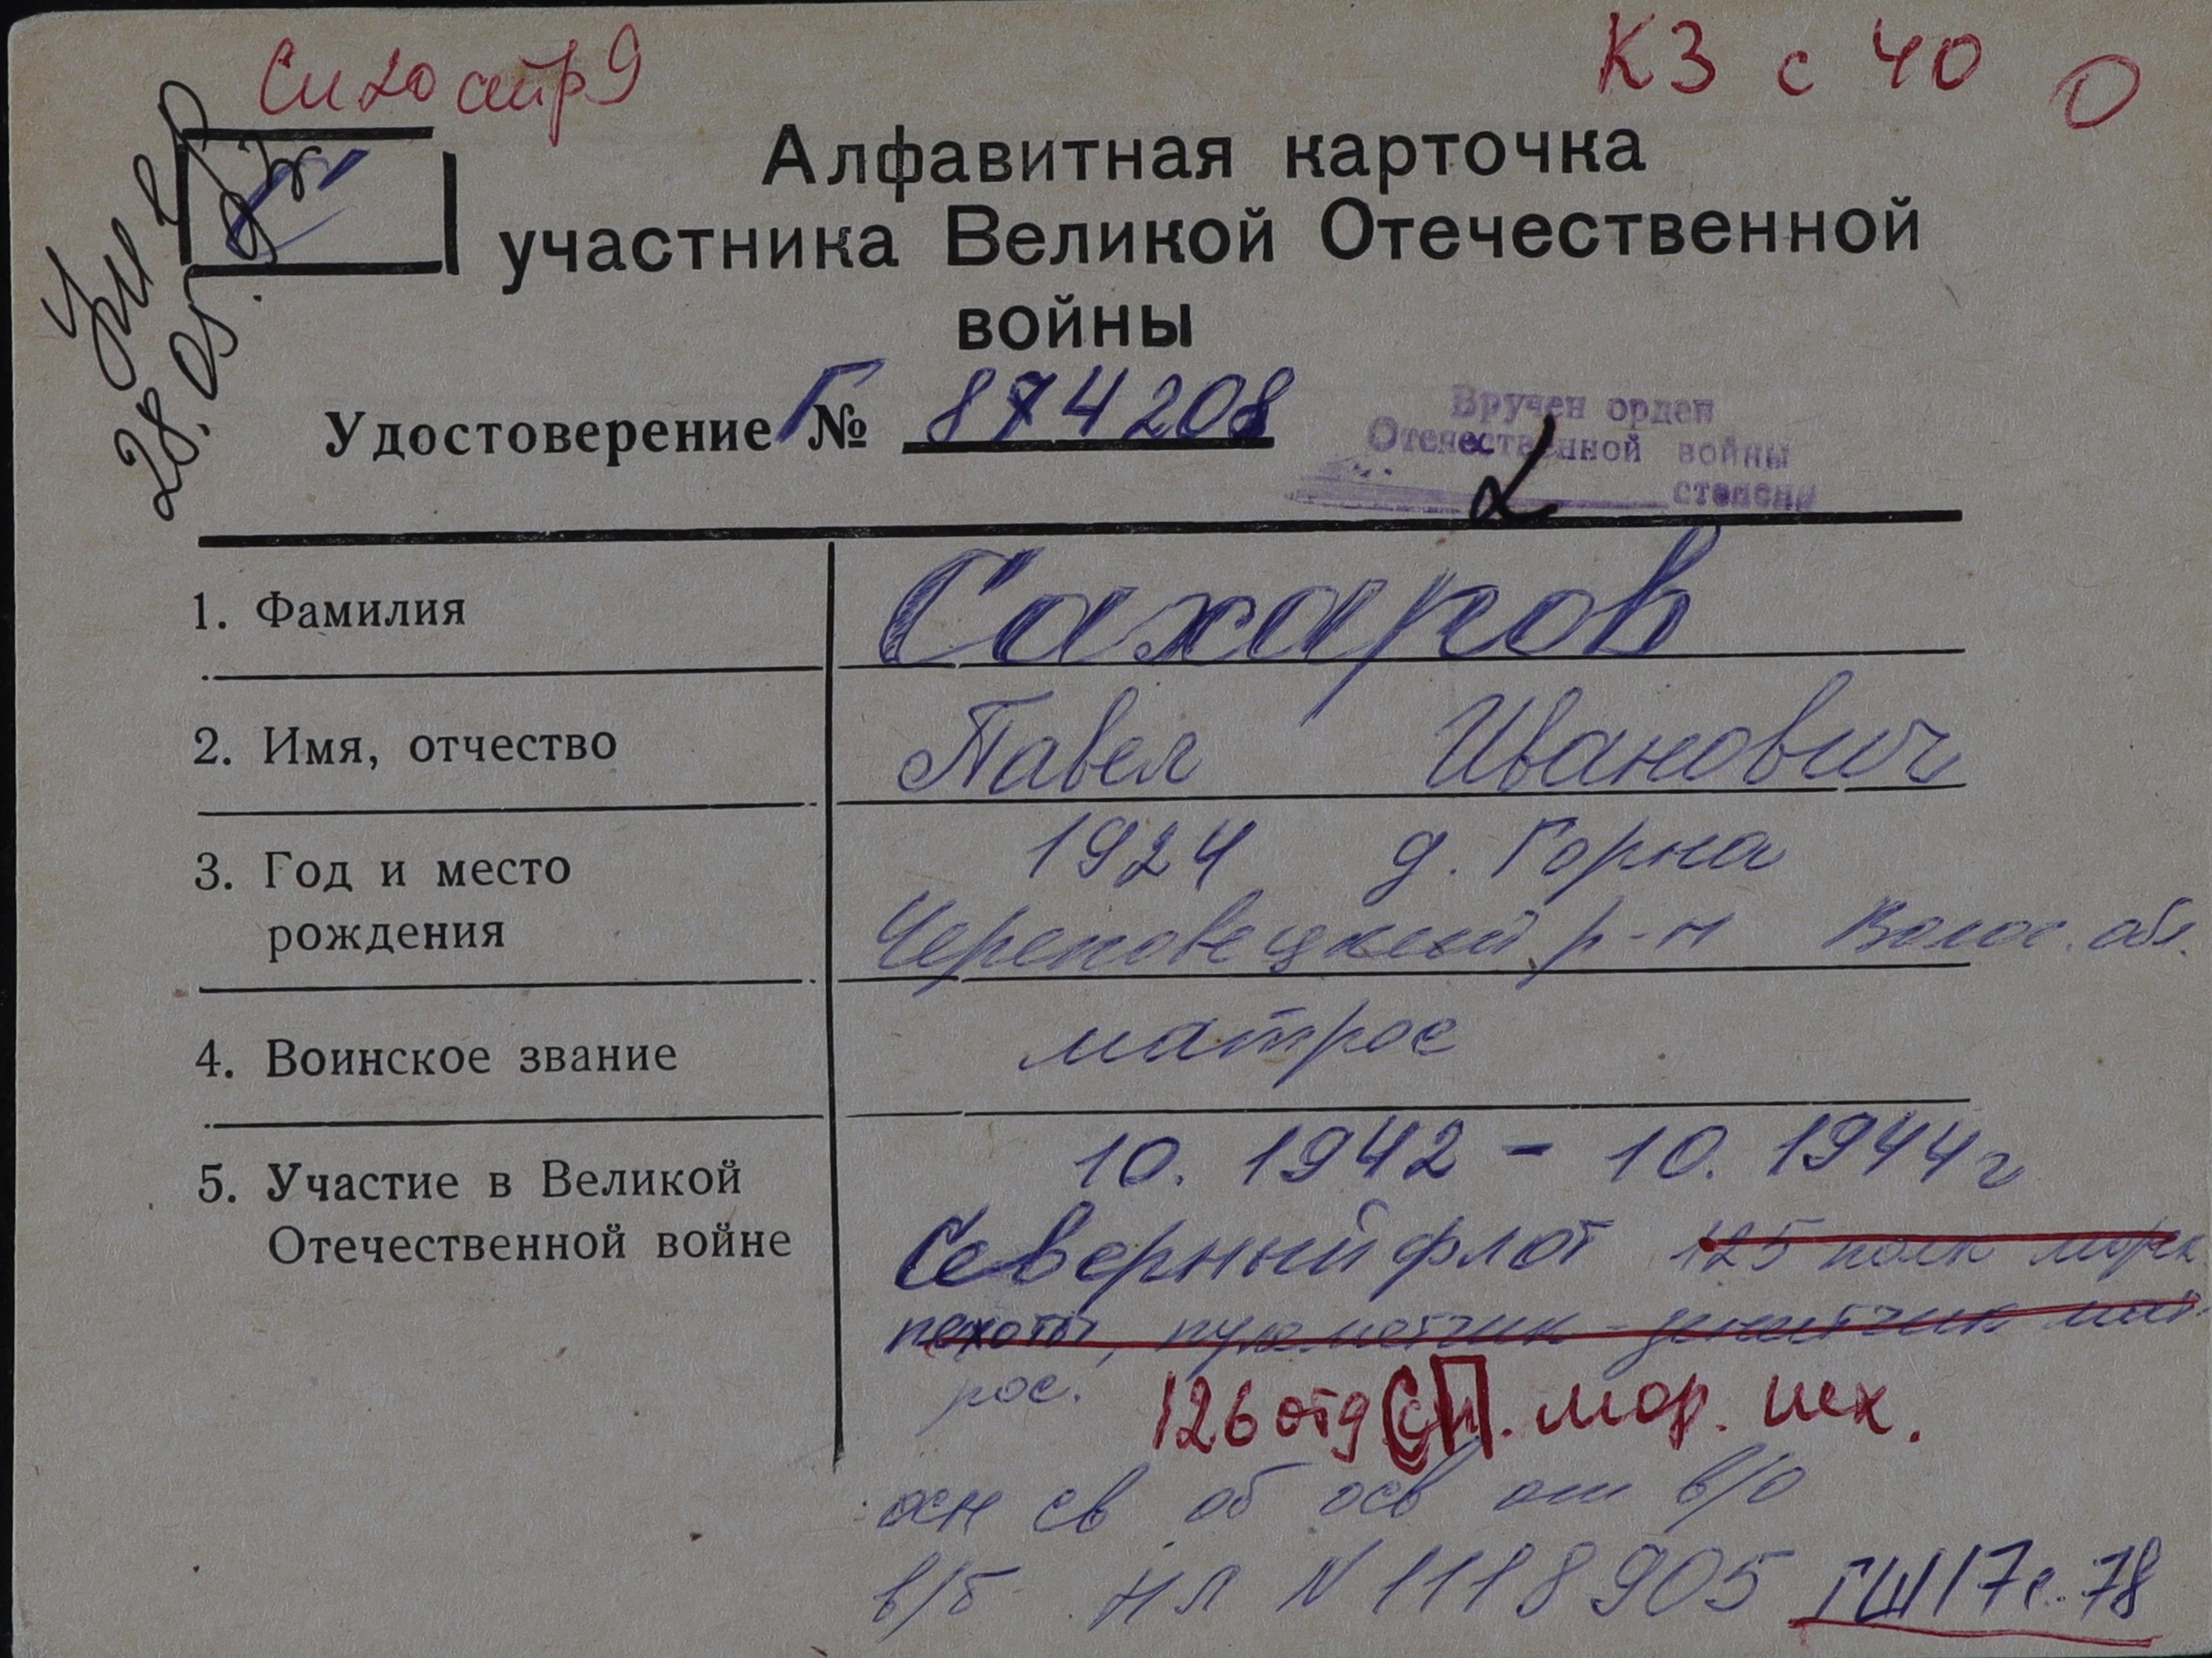 Сп 20 стр 9
КЗ с 40 0
Алфавитная карточка
участника Великой Отечественной
войны
Удостоверение Г № 874208
Вручен орден
Отечественной войны
2 степени
28.05.
1. Фамилия Сахаров
2. Имя, отчество Павел Иванович
3. Год и место 1924 д. Горка
рождения Череповецкий р-н Волог. обл.
4. Воинское звание матрос
5. Участие в Великой 10.1942 - 10.1944 г
Отечественной войне Северный флот 125 полк морск
пехоты, пулеметчик-зенитчик мат
рос. 126 отд СП. мор. пех.
осн св об осв от в/о
в/б НЛ N 1118905 ГШ 17 с. 78